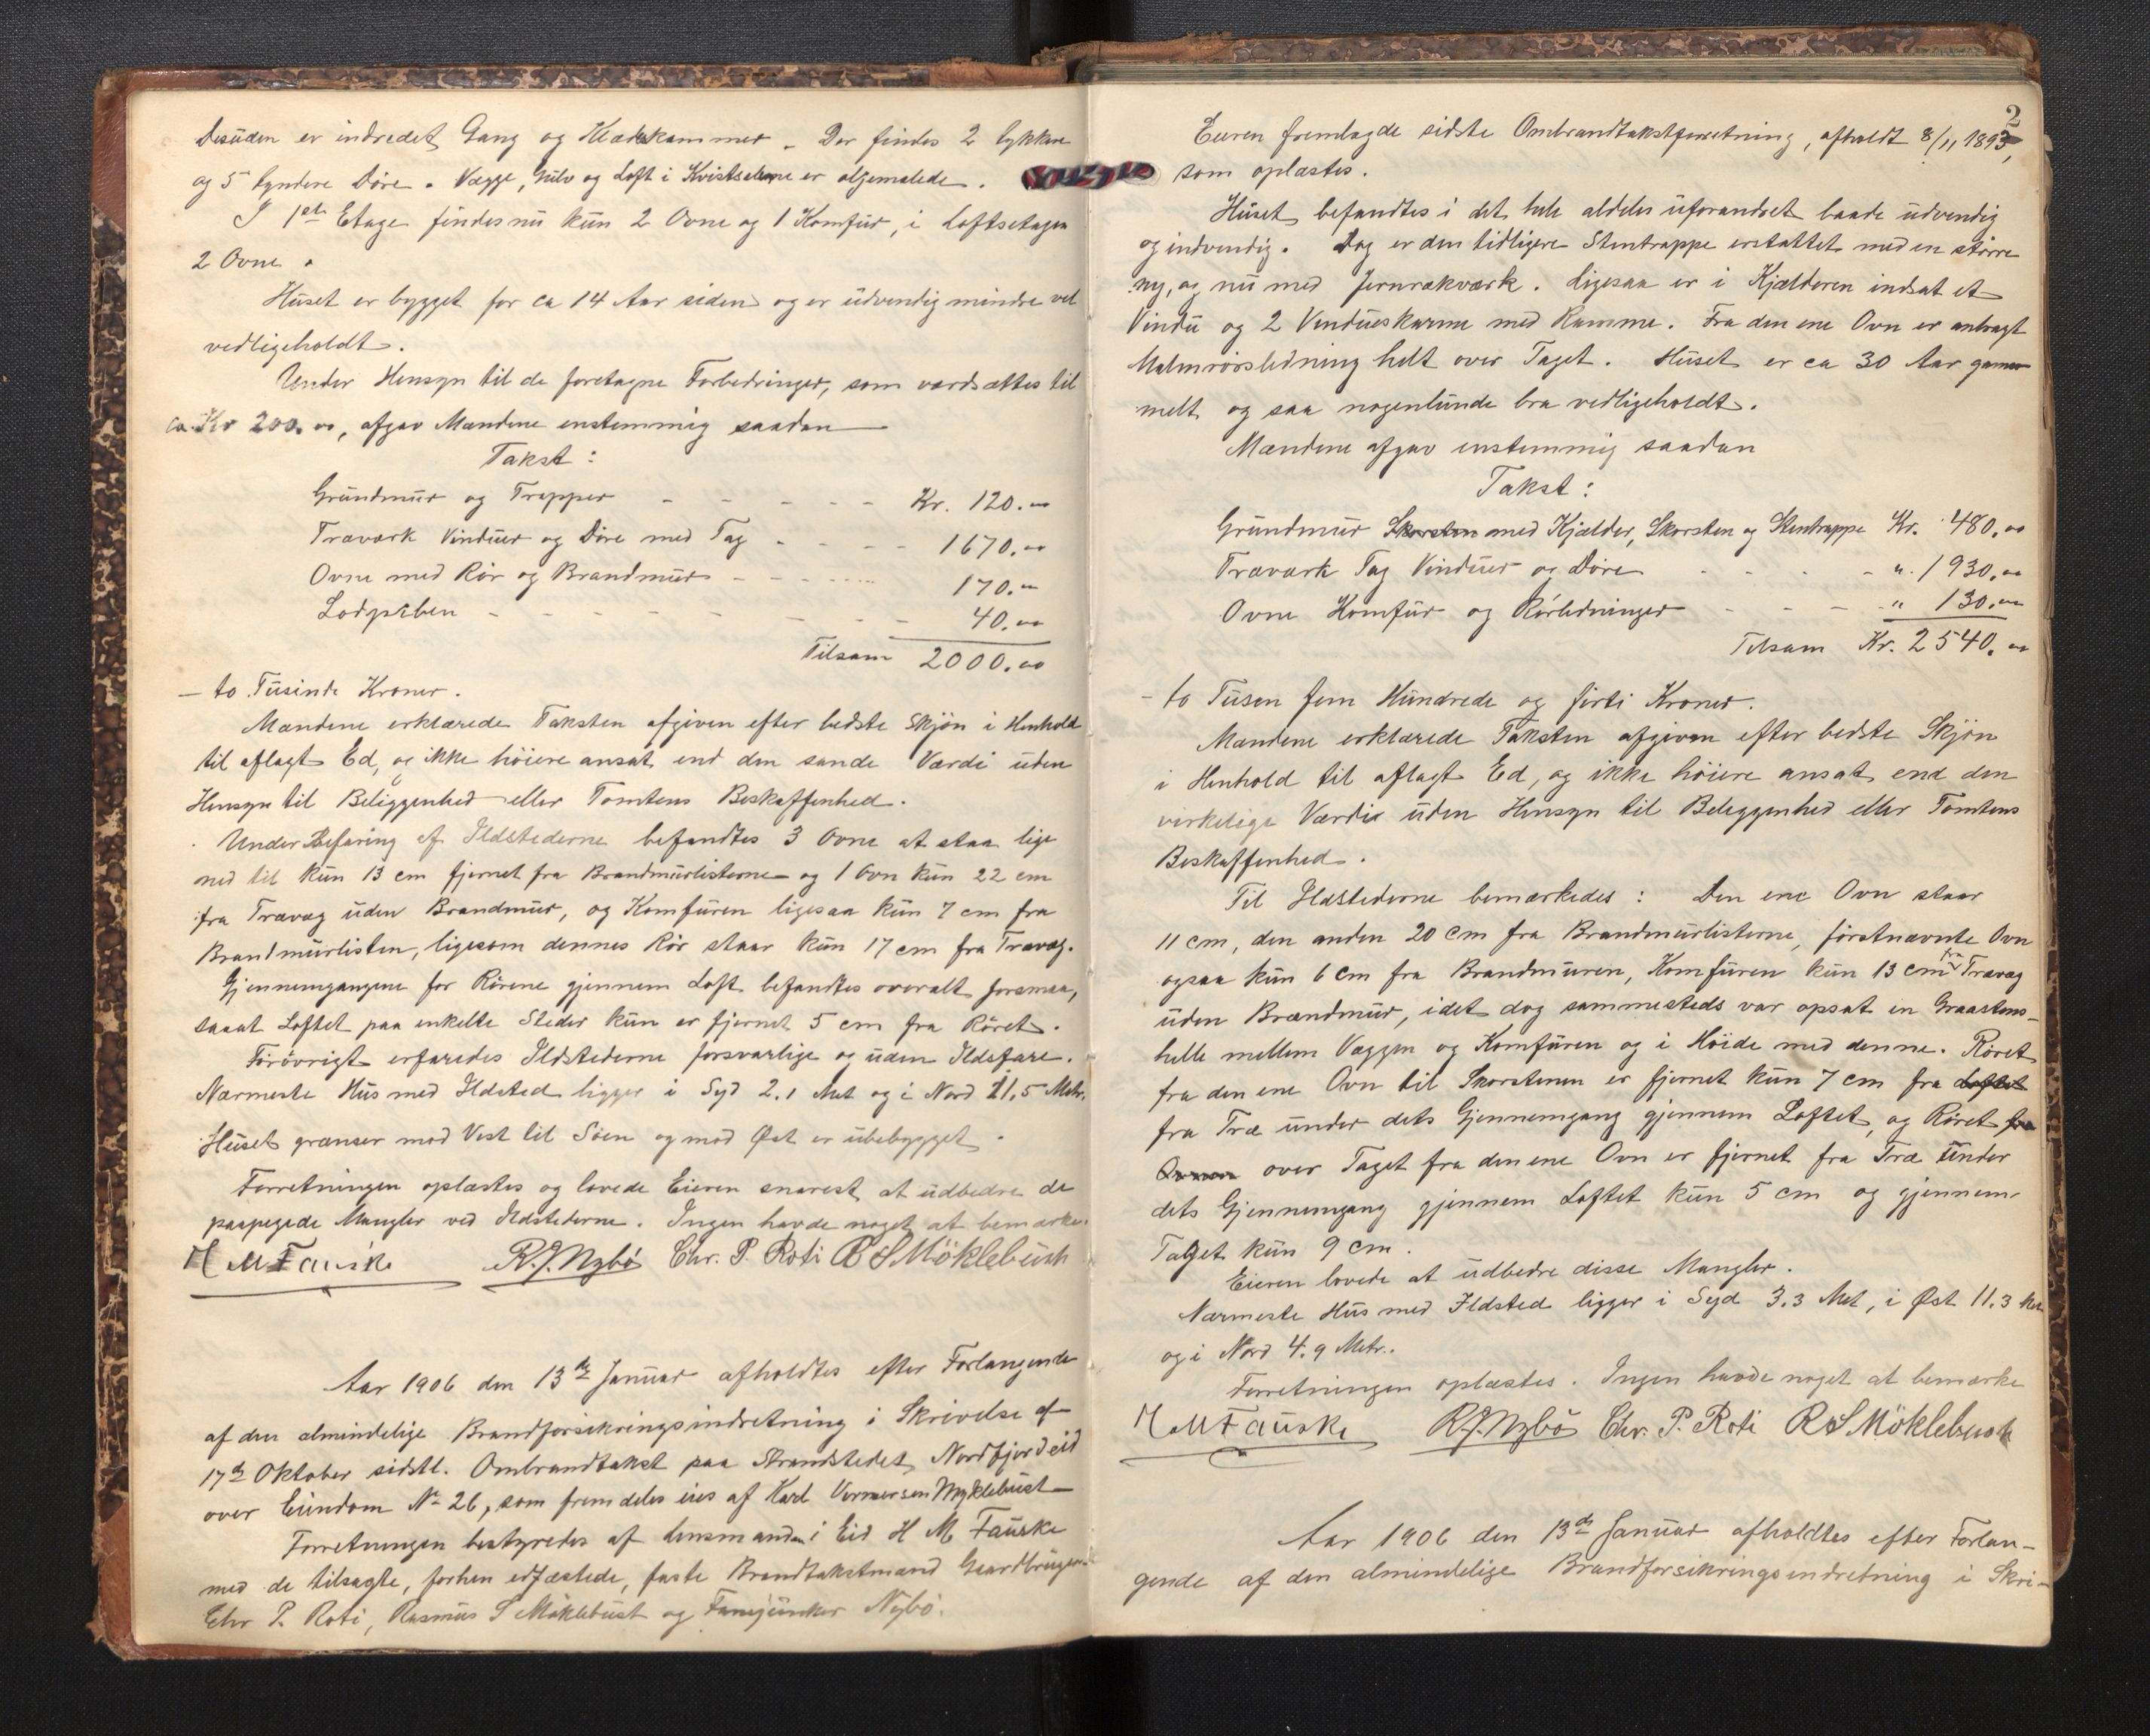 Desuden er indredet Gang og Klædeskammer. Der findes 2 tykkere
og 5 tyndere Døre. Vægge, Gulv og Loft i Kvistsalene er oljemalede.
I 1ste Etage findes nu kun 2 Ovne og 1 Komfur, i Loftsetagen
2 Ovne.
Huset er bygget for ca 14 Aar siden og er udvendig mindre vel
vedligeholdt.
Under Hensyn til de foretagne Forbedringer, som værdsættes til
ca Kr 200.00, afgav Mændene enstemmig saadan
Takst:
Grundmur og Trapper - - - - - Kr. 120.00
Træværk Vinduer og Døre med Tag - - - - 1670.00
Ovne med Rør og Brandmur - - - - 170.00
Lodpiben - - - - - - - 40.00
Tilsam 2000.00
- to Tusinde Kroner.
Mændene erklærede Taksten afgiven efter bedste Skjøn i Henhold
til aflagt Ed, og ikke høiere ansat end den sande Værdi uden
Hensyn til Beliggenhed eller Tomtens Beskaffenhed.
Under Befaring af Ildstederne befandtes 3 Ovne at staa lige
ned til kun 13 cm fjernet fra Brandmurlisterne og 1 Ovn kun 22 cm
fra Trævæg uden Brandmur, og Komfuren ligesaa kun 7 cm fra
Brandmurlisten, ligesom dennes Rør staar kun 17 cm fra Trævæg.
Gjennemgangene for Rørene gjennem Loft befandtes overalt forsmaa,
saaat Loftet paa enkelte Steder kun er fjernet 5 cm fra Røret.
Forøvrigt erfaredes Ildstederne forsvarlige og uden Ildsfare.
Nærmeste Hus med Ildsted ligger i Syd 2.1 Met og i Nord 11,5 Metr.
Huset grænser mod Vest til Søen og mod Øst er ubebygget.
Forretningen oplæstes og lovede Eieren snarest at udbedre de
paapegede Mangler ved Ildstederne. Ingen havde noget at bemærke.
H M Fauske R.J. Nybø Chr. P. Roti R S Möklebust
Aar 1906 den 13de Januar afholdtes efter Forlangende
af den almindelige Brandforsikringsindretning i Skrivelse af
17de Oktober sidstl. Ombrandtakst paa Strandstedet Nordfjordeid
over Eiendom No 26, som fremdeles eies af Karl Myklebust
Forretningen bestyredes af Lensmanden i Eid H M Fauske
med de tilsagte, forhen edfæstede, faste Brandtakstmænd Gaardbruger
Chr P. Roti, Rasmus S Möklebust og Fanejunker Nybø.
2
Eieren fremlagde sidste Ombrandtakstforretning, afholdt 8/11 1893,
som oplæstes.
Huset befandtes i det hele aldeles uforandret baade udvendig
og indvendig. Dog er den tidligere Stentrappe erstattet med en større
ny, og nu med Jernrækværk. Ligesaa er i Kjælderen indsat et
Vindu og 2 Vindueskarme med Ramme. Fra den ene Ovn er anbragt
Malmrørsledning helt over Taget. Huset er ca 30 Aar gam-
melt og saa nogenlunde bra vedligeholdt.
Mændene afgav enstemmig saadan
Takst:
Grundmur Skorsten med Kjælder, Skorsten og Stentrappe Kr. 480.00
Træværk Tag Vinduer og Døre - - - - " 1930.00
Ovne Komfur og Rørledninger - - - - " 130.00
Tilsam Kr. 2540.00
- to Tusen fem Hundrede og firti Kroner.
Mændene erklærede Taksten afgiven efter bedste Skjøn
i Henhold til aflagt Ed, og ikke høiere ansat end den
virkelige Værdi uden Hensyn til Beliggenhed eller Tomtens
Beskaffenhed.
Til Ildstederne bemærkedes: Den ene Ovn staar
11 cm, den anden 20 cm fra Brandmurlisterne, førstnævnte Ovn
ogsaa kun 6 cm fra Brandmuren, Komfuren kun 13 cm fra Trævæg
uden Brandmur, idet dog sammesteds var opsat en Graastens-
helle mellem Væggen og Komfuren og i Høide med denne. Røret
fra den ene Ovn til Skorstenen er fjernet kun 7 cm fra Loftet
fra Træ under dets Gjennemgang gjennem Loftet, og Røret fra
Ovnen over Taget fra den ene Ovn er fjernet fra Træ under
dets Gjennemgang gjennem Loftet kun 5 cm og gjennem
Taget kun 9 cm.
Eieren lovede at udbedre disse Mangler.
Nærmeste Hus med Ildsted ligger i Syd 3.3 Met, i Øst 11.3 Met
og i Nord 4.9 Metr.
Forretningen oplæstes. Ingen havde noget at bemærke
H M Fauske R.J. Nybø Chr. P. Roti R S Möklebust
Aar 1906 den 13de Januar afholdtes efter Forlan-
gende af den almindelige Brandforsikringsindretning i Skri-